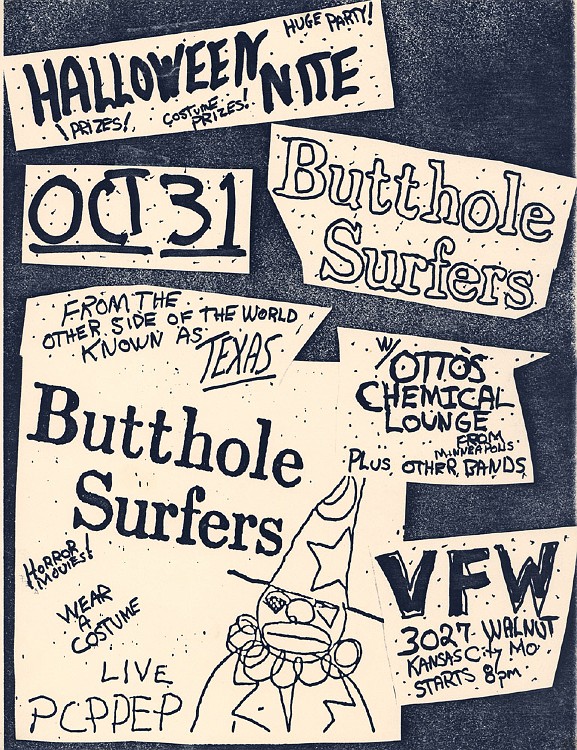 HUGE PARTY!
HALLOWEEN NITE
PRIZES!
COSTUME PRIZES!
OCT 31
Butthole
Surfers
FROM THE
OTHER SIDE OF THE WORLD
KNOWN AS
TEXAS
W/ OTTO'S
CHEMICAL
LOUNGE
FROM
MINNEAPOLIS
PLUS OTHER BANDS
Butthole
Surfers
HORROR
MOVIES!
WEAR
A
COSTUME
LIVE
PCPPEP
VFW
3027 WALNUT
KANSAS CITY MO
STARTS 8pm